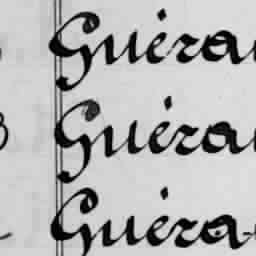 Guéra
Guéra
Guéra